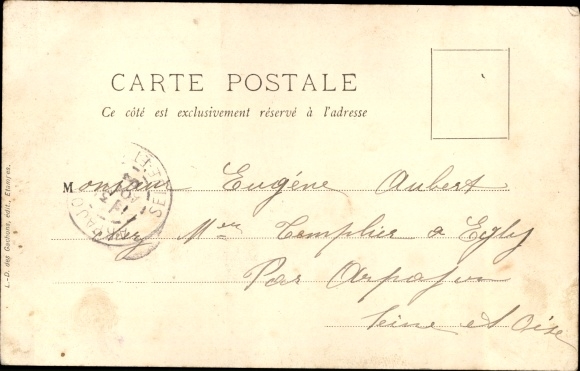 CARTE POSTALE
Ce côté est exclusivement réservé à l'adresse
Monsieur Eugène Aubert
chez Mer Templier à Egly
Par Arpajon
Seine et Oise
L.-D. des Gachons, édit., Etampes.